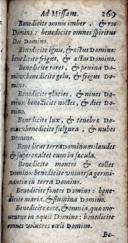 Ad Missam. 269
Benedicite omnis imber, & ros
Domino: benedicite omnes spiritus
Dei Domino.
Benedicite ignis, & æstus Domino:
benedicite frigus, & æstus Domino.
Benedicite rores, & pruina Domino:
benedicite gelu, & frigus
Domino.
Benedicite glacies, & nives Domino:
benedicite noctes, & dies
Domino.
Benedicite lux, & tenebræ Domino:
benedicite fulgura, & nubes
Domino.
Benedicat terra Dominum: laudet
& superexaltet eum in sæcula.
Benedicite montes, & colles
Domino: benedicite universa germinantia
in terra Domino.
Benedicite fontes Domino: benedicite
maria, & flumina Domino.
Benedicite cete, & omnia, quæ moventur
in aquis Domino: benedicite
omnes volucres cæli Domino.
Be-